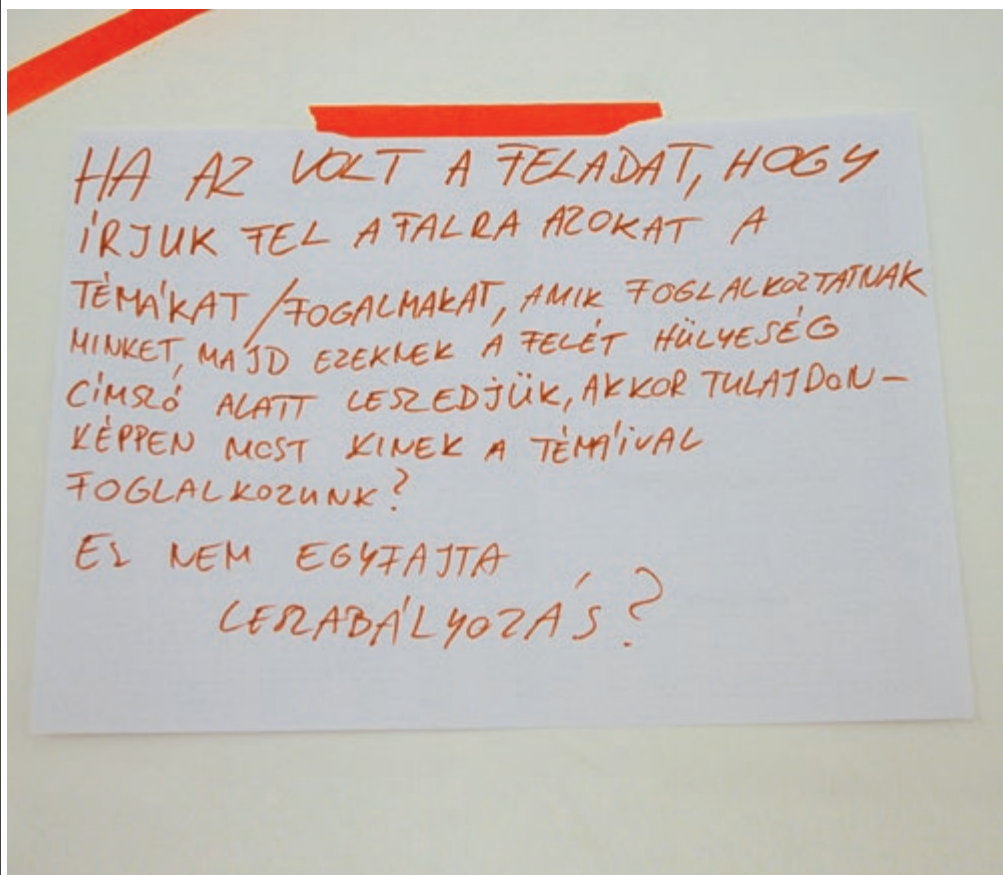 HA AZ VOLT A FELADAT, HOGY
ÍRJUK FEL A FALRA AZOKAT A
TÉMÁKAT / FOGALMAKAT, AMIK FOGLALKOZTATNAK
MINKET, MAJD EZEKNEK A FELÉT HÜLYESÉG
CÍMSZÓ ALATT LESZEDJÜK, AKKOR TULAJDON-
KÉPPEN MOST KINEK A TÉMÁIVAL
FOGLALKOZUNK?
EZ NEM EGYFAJTA
LESZABÁLYOZÁS?